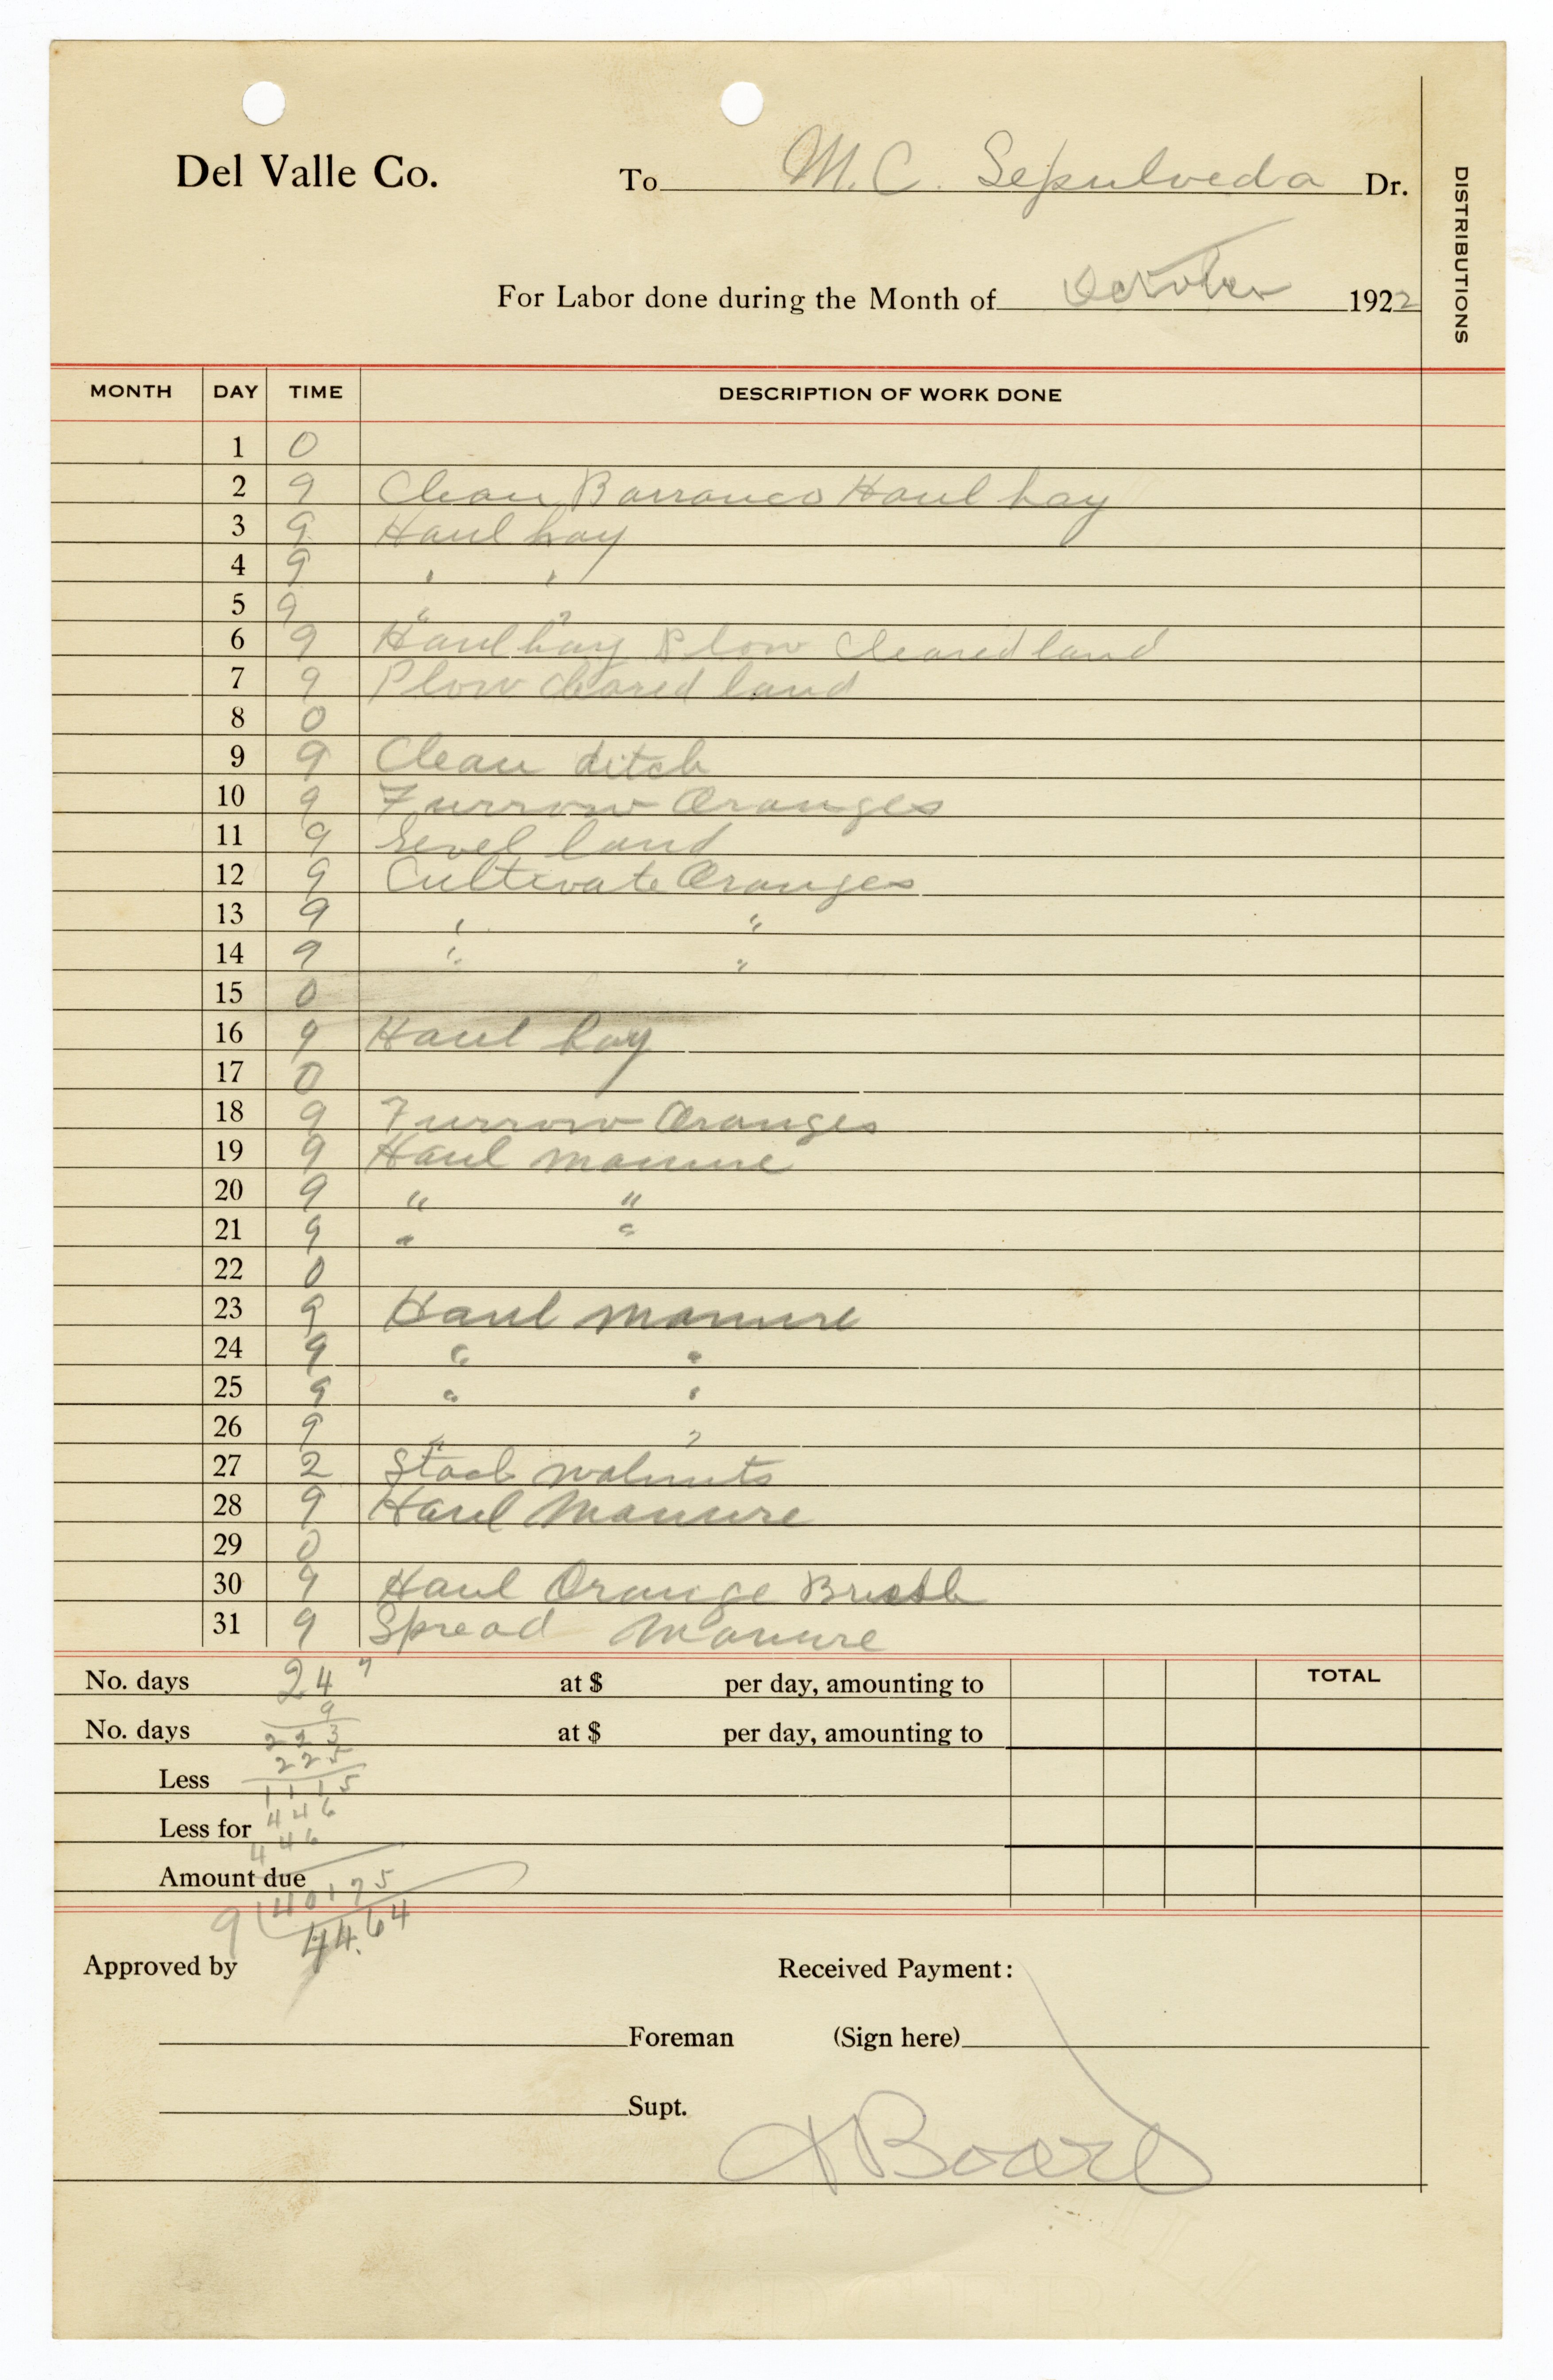 Del Valle Co. To M. C. Sepulveda Dr.
DISTRIBUTIONS
For Labor done during the Month of October 1922
MONTH DAY TIME DESCRIPTION OF WORK DONE
1 0
2 9 Clean Barranco Haul hay
3 9 Haul hay
4 9 " "
5 9 " "
6 9 Haul hay Plow Cleared land
7 9 Plow cleared land
8 0
9 9 Clean ditch
10 9 Furrow Oranges
11 9 Level land
12 9 Cultivate Oranges
13 9 " "
14 9 " "
15 0
16 9 Haul hay
17 0
18 9 Furrow Oranges
19 9 Haul manure
20 9 " "
21 9 " "
22 0
23 9 Haul manure
24 9 " "
25 9 " "
26 9 " "
27 2 Stack walnuts
28 9 Haul Manure
29 0
30 9 Haul Orange Brush
31 9 Spread Manure
No. days 24 7 at $ per day, amounting to TOTAL
9
No. days 223 at $ per day, amounting to
225
Less 1115
446
Less for 446
Amount due 40175
9
44.64
Approved by Received Payment:
Foreman (Sign here)
Supt.
Board